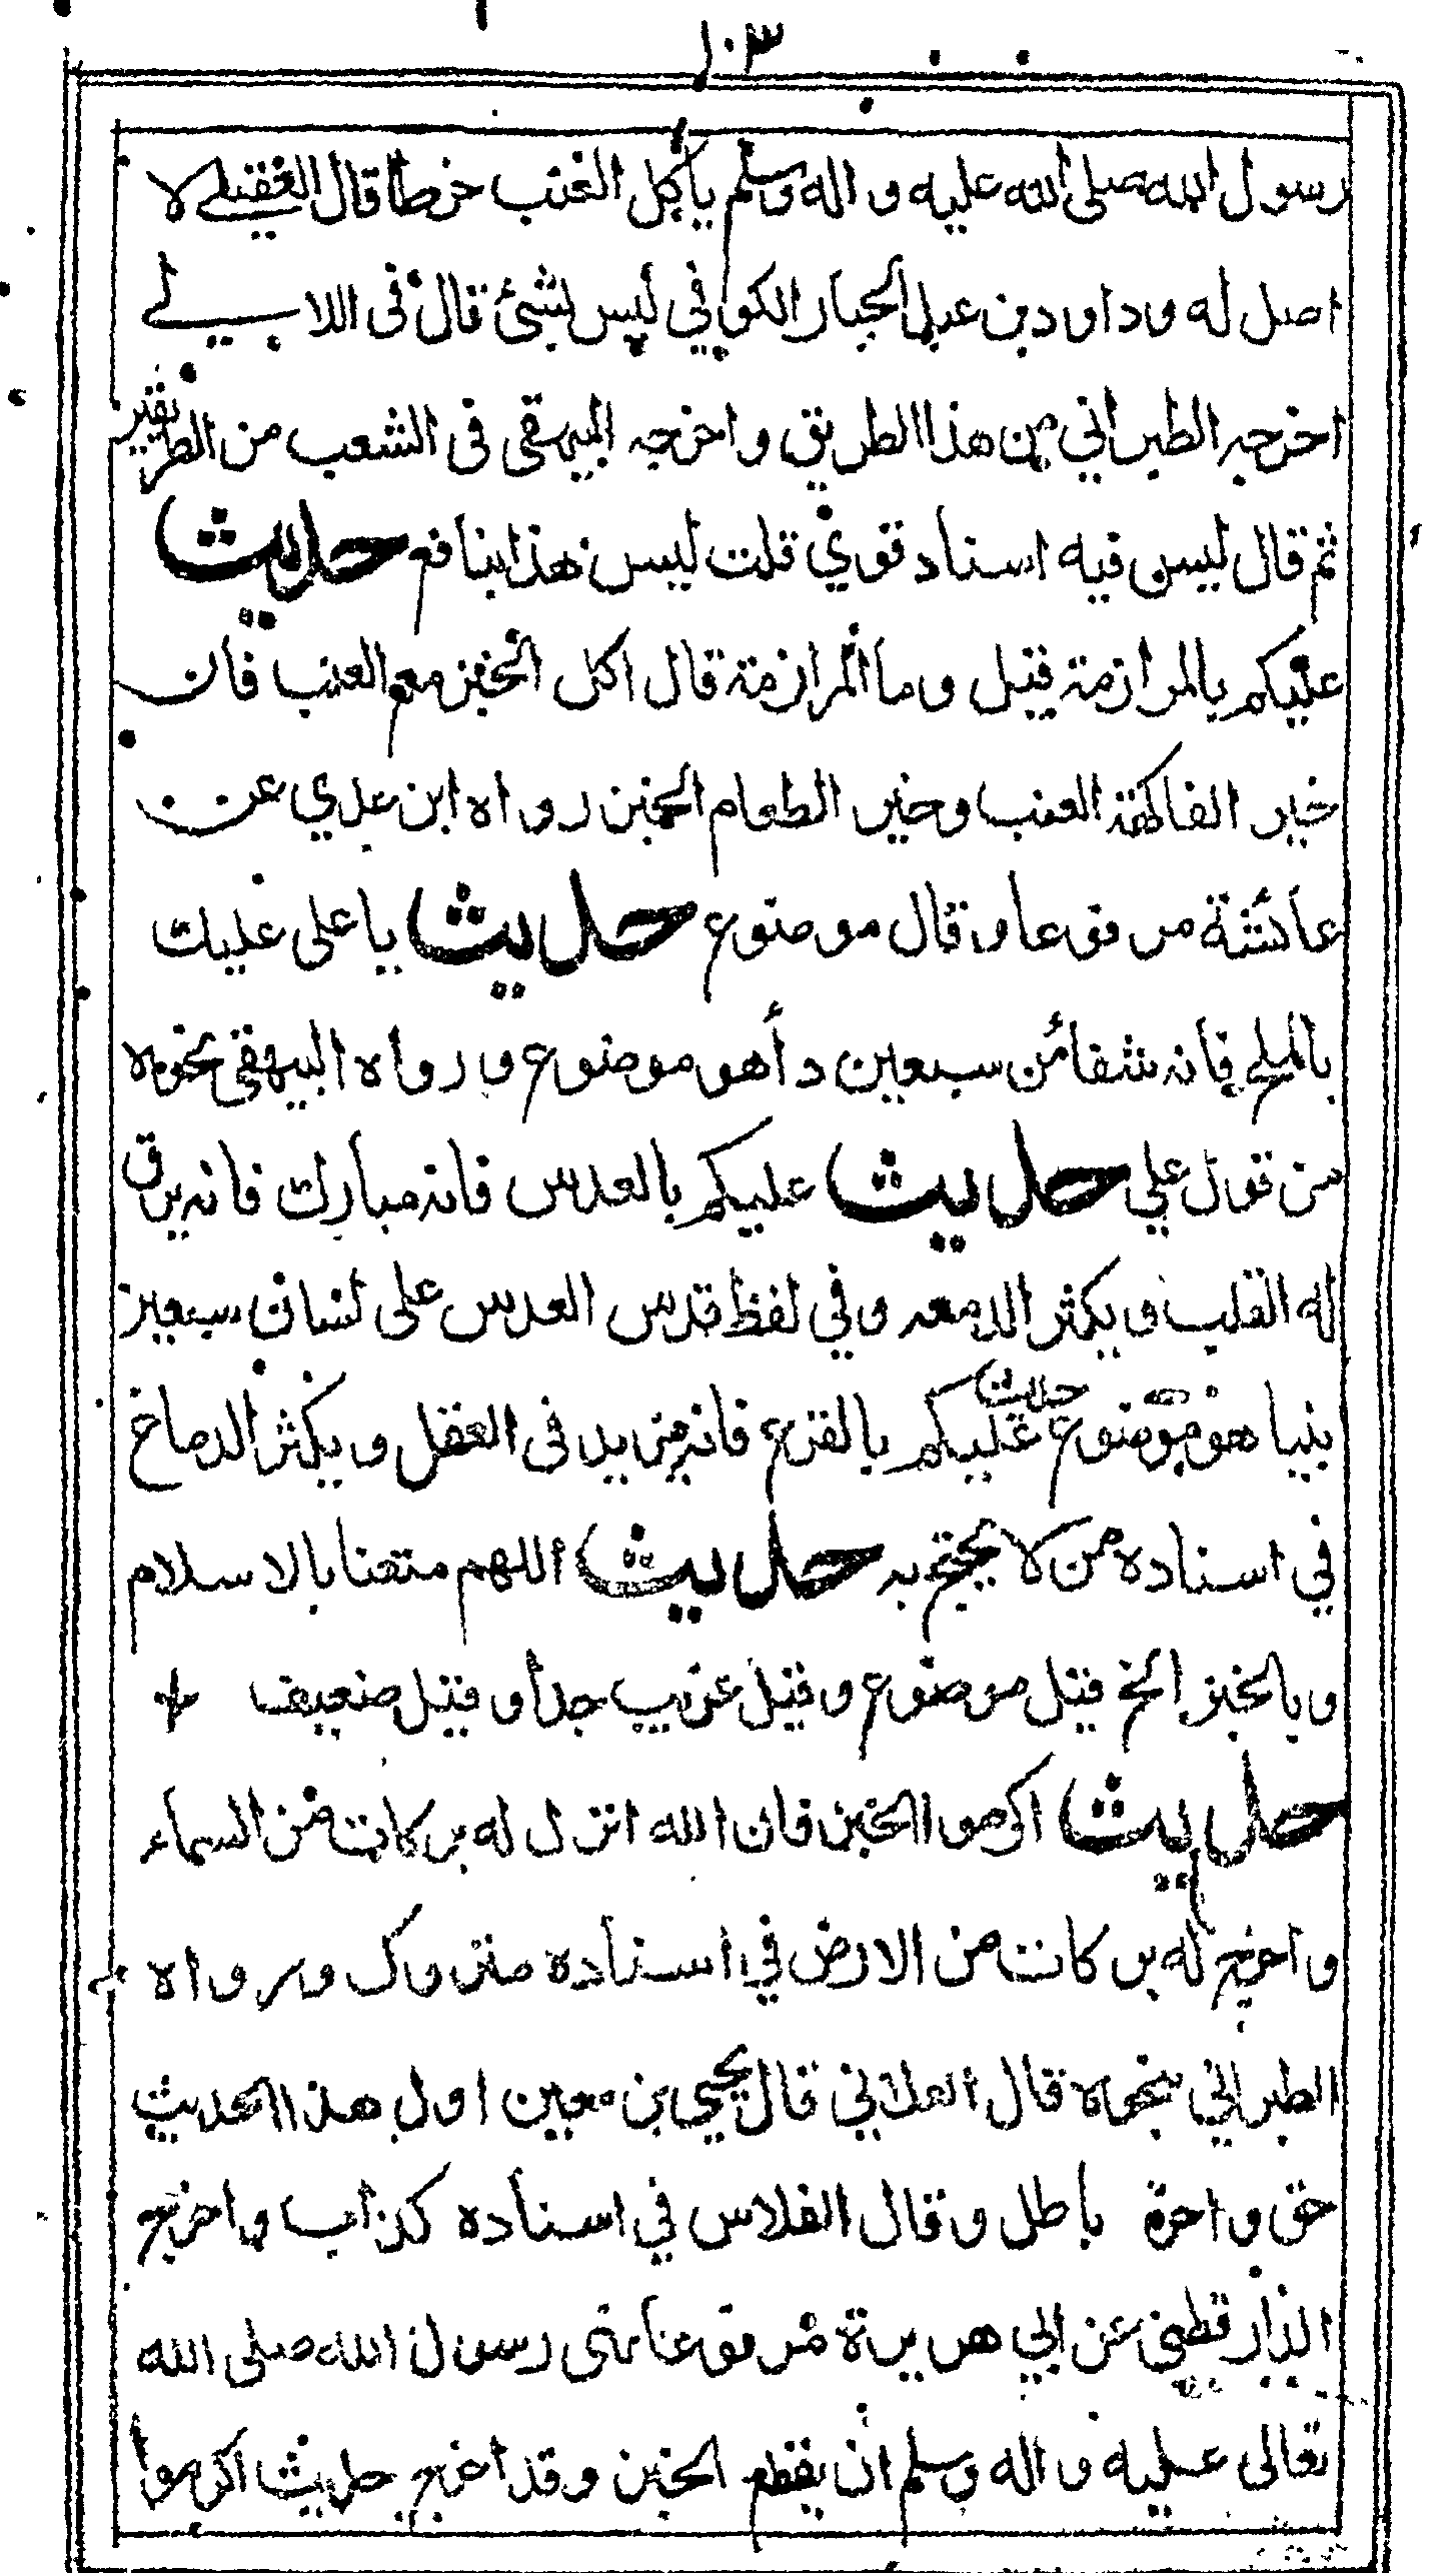 ١٠٣
رسول الله صلى الله عليه و اله وسلم يأكل العنب خرطا قال العقيلے لا
اصل له وداود بن عبد الجبار الكوفي ليس بشئ قال فى اللالے
اخرجه الطبراني من هذا الطريق و اخرجه البيهقى فى الشعب من الطريقين
ثم قال ليس فيه اسناد قوي قلت ليس هذا بنافع حديث
عليكم بالمرازمة قيل وما المرازمة قال اكل الخبز مع العنب فان
خير الفاكهة العنب وخير الطعام الخبز رواه ابن عدي عن
عائشة مرفوعا وقال موضوع حديث يا على عليك
بالملح فانه شفا من سبعين دأ هو موضوع و رواه البيهقى بنحوه
من قول علي حديث عليكم بالعدس فانه مبارك فانه يرق
له القلب ويكثر الدمعه وفي لفظ قدس العدس على لسان سبعين
نبيا هو موضوع حديث عليكم بالقرع فانه يزيد فى العقل ويكثر الدماغ
في اسناده من لا يحتج به حديث اللهم متعنا بالاسلام
وبالخبز الخ قيل موضوع وقيل غريب جدا وقيل ضعيف
حديث اكرموا الخبز فان الله انزل له بركات من السماء
و اخرج له بركات من الارض في اسناده متروك ورواه
الطبراني بنحوه قال الغلابي قال يحيى بن معين اول هذا الحديث
حق و اخرة باطل وقال الفلاس في اسناده كذاب و اخرج
الدارقطني عن ابي هريرة مرفوعا نهى رسول الله صلى الله
تعالى عليه و اله وسلم ان يقطع الخبز وقد اخرج حديث اكرموا